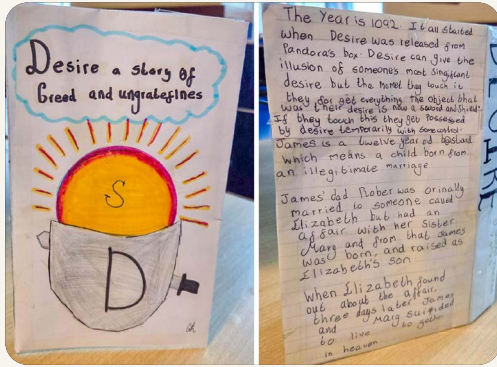 Desire a story of
Greed and ungratefines
S
D
The Year is 1092. It all started
when Desire was released from
Pandora's box. Desire can give the
illusion of someone's most
desire but the they touch it
they for get everything. The object that
was their desire is now a
If they touch this they get Possessed
by desire temporarily with
James is a twelve year old bastard
which means a child born from
an illegitimate marriage
James' dad Rober was orinally
married to someone called
Elizabeth but had an
affair with her Sister
Mary and from that James
was born, and raised as
Elizabeth's son
when Elizabeth found
out about the affair,
three days later James
and Mary
to live to
in heaven
DESIRE